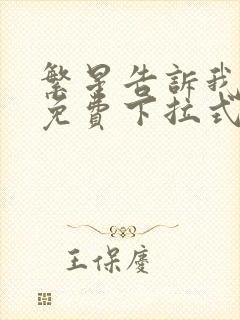 繁星告訴我
免費下拉式
王保慶